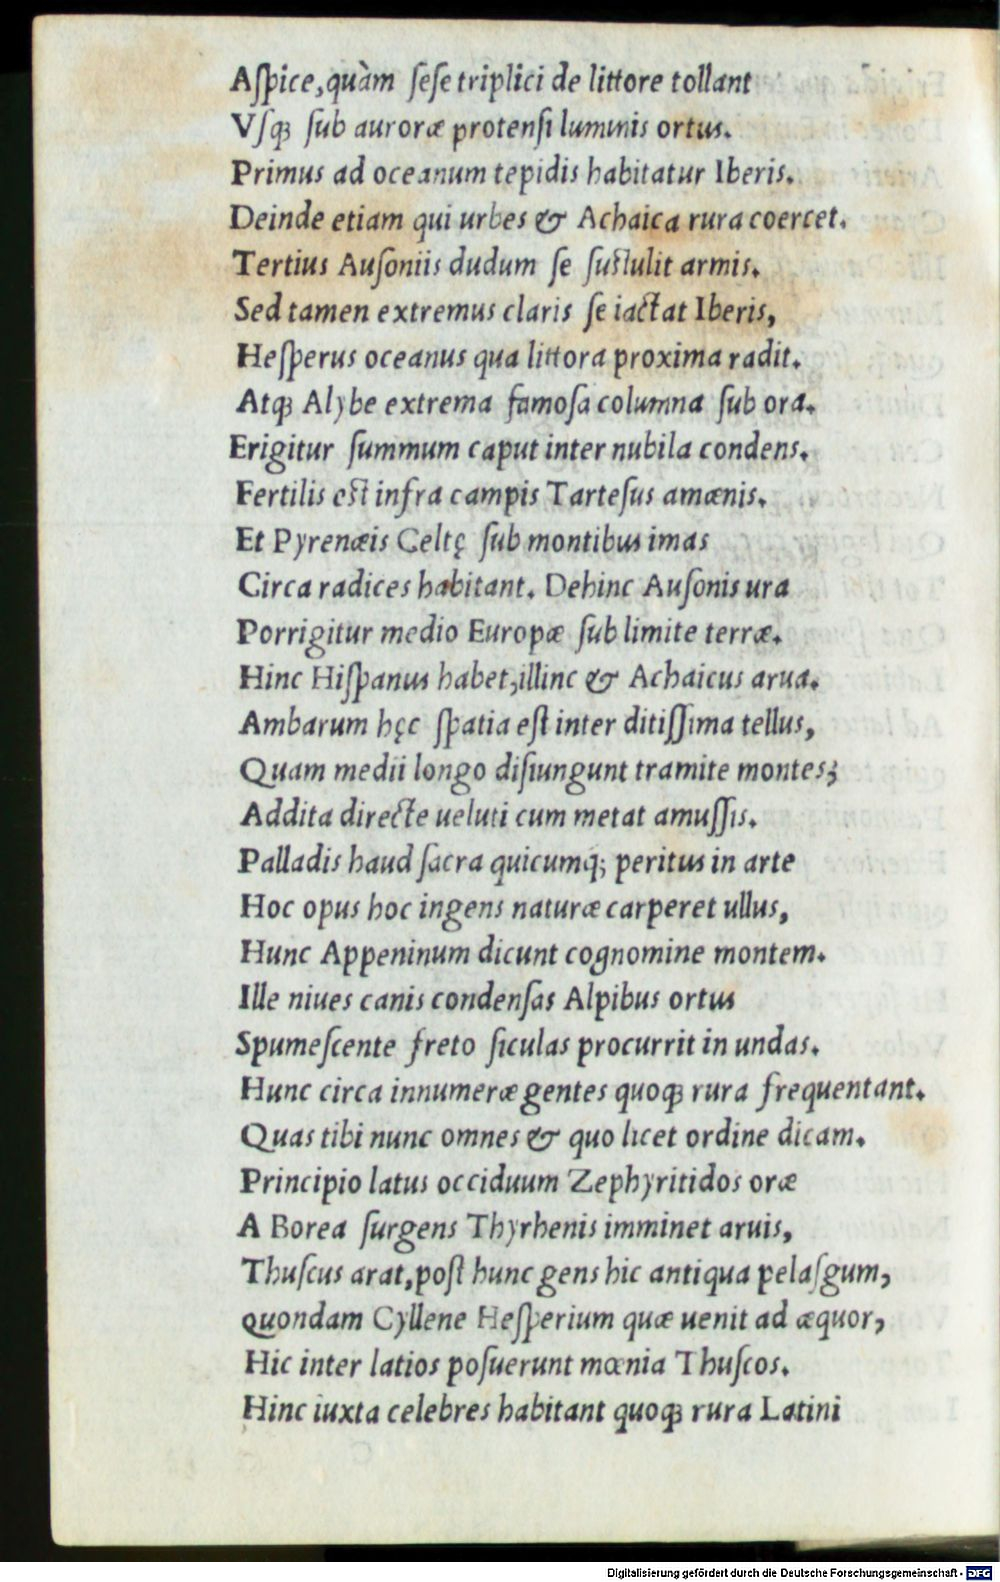 Aſpice, quàm ſeſe triplici de littore tollant
Vſqꝫ ſub auroræ protenſi luminis ortus.
Primus ad oceanum tepidis habitatur Iberis.
Deinde etiam qui urbes & Achaica rura coercet.
Tertius Auſoniis dudum ſe ſuſtulit armis.
Sed tamen extremus claris ſe iactat Iberis,
Heſperus oceanus qua littora proxima radit.
Atqꝫ Alybe extrema famoſa columna ſub ora.
Erigitur ſummum caput inter nubila condens.
Fertilis eſt infra campis Tarteſus amœnis.
Et Pyrenæis Celtę ſub montibus imas
Circa radices habitant. Dehinc Auſonis ura
Porrigitur medio Europæ ſub limite terræ.
Hinc Hiſpanus habet, illinc & Achaicus arua.
Ambarum hęc ſpatia eſt inter ditiſſima tellus,
Quam medii longo diſiungunt tramite montes;
Addita directe ueluti cum metat amuſſis.
Palladis haud ſacra quicumqꝫ peritus in arte
Hoc opus hoc ingens naturæ carperet ullus,
Hunc Appeninum dicunt cognomine montem.
Ille niues canis condenſas Alpibus ortus
Spumeſcente freto ſiculas procurrit in undas.
Hunc circa innumeræ gentes quoqꝫ rura frequentant.
Quas tibi nunc omnes & quo licet ordine dicam.
Principio latus occiduum Zephyritidos oræ
A Borea ſurgens Thyrhenis imminet aruis,
Thuſcus arat, poſt hunc gens hic antiqua pelaſgum,
quondam Cyllene Heſperium quæ uenit ad æquor,
Hic inter latios poſuerunt mœnia Thuſcos.
Hinc iuxta celebres habitant quoqꝫ rura Latini
Digitalisierung gefördert durch die Deutsche Forschungsgemeinschaft - DFG